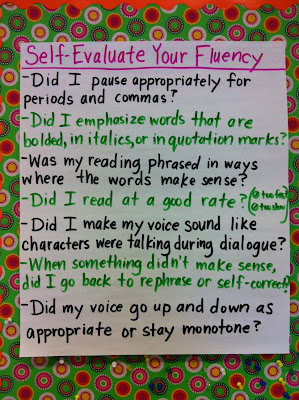 Self-Evaluate Your Fluency
-Did I pause appropriately for
periods and commas?
-Did I emphasize words that are
bolded, in italics, or in quotation marks?
-Was my reading phrased in ways
where the words make sense?
-Did I read at a good rate? too fast
too slow
-Did I make my voice sound like
characters were talking during dialogue?
-When something didn't make sense,
did I go back to rephrase or self-correct?
-Did my voice go up and down as
appropriate or stay monotone?